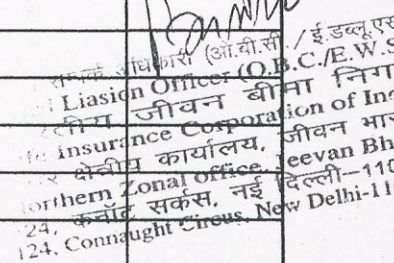 सम्पर्क अधिकारी (ओ.बी.सी./ई.डब्लू.एस
Liasion Officer (O.B.C./E.W.S
तीय जीवन बीमा निग
Insurance Corporation of In
क्षेत्रीय कार्यालय, जीवन भार
orthern Zonal office, Jeevan Bh
24, कनॉट सर्कस, नई दिल्ली-110
124, Connaught Circus, New Delhi-11